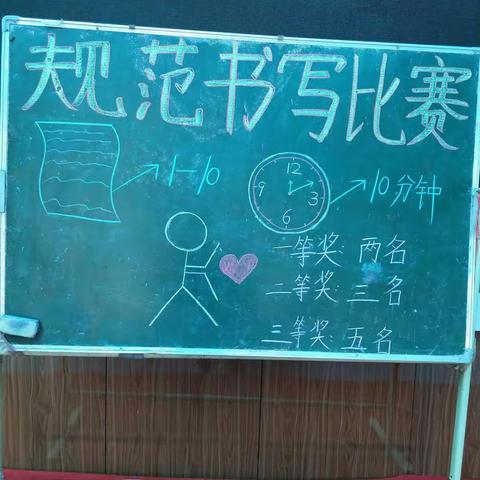 规范书写比赛
1-10
12
9 3
6
10分钟
一等奖: 两名
二等奖: 三名
三等奖: 五名